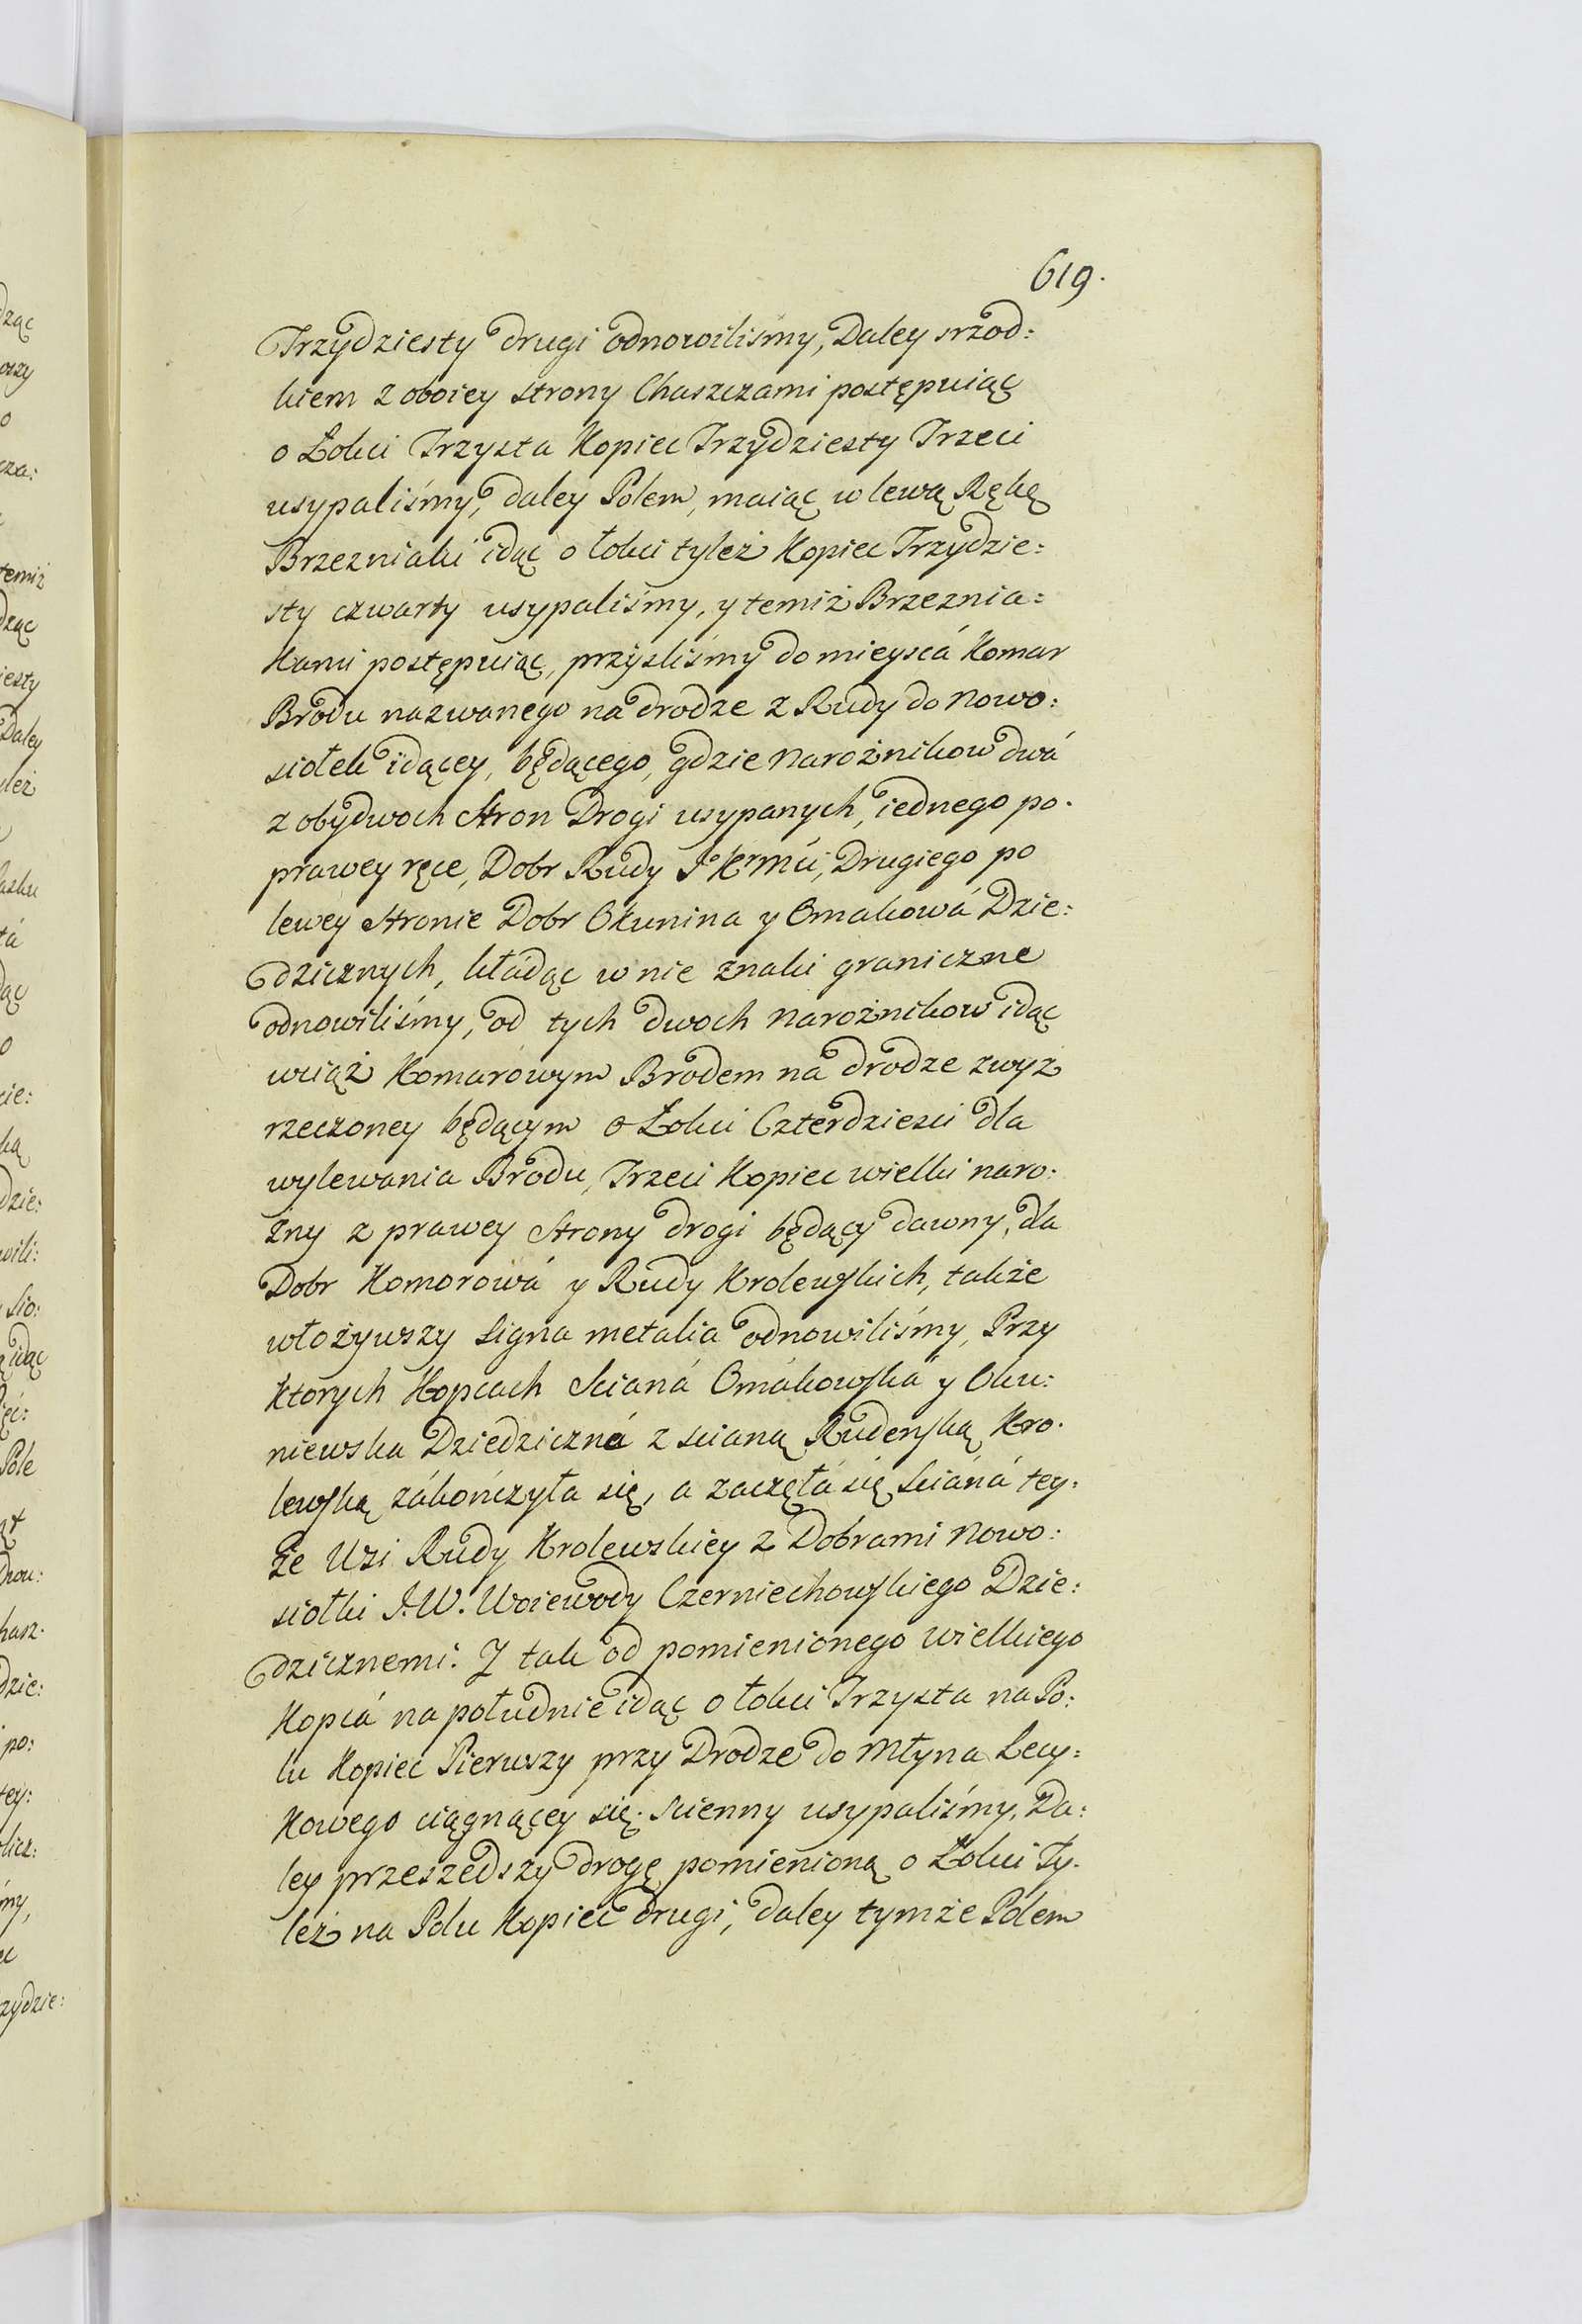 619.
Trzydziesty drugi odnowiliśmy, Daley srzod:
kiem z oboiey strony Chaszczami postępuiąc
o Łokci Trzysta Kopiec Trzydziesty Trzeci
usypaliśmy, daley Polem, maiąc w lewą Rękę
Brzezniaki idąc o łokci tyleż Kopiec Trzydzie:
sty czwarty usypaliśmy, y temiż Brzeznia:
kami postępuiąc, przyśliśmy do mieyscá Komar
Brodu nazwanego na drodze z Rudy do Nowo:
siołek idącey, będącego, gdzie Narożnikow dwá
z obydwoch Stron Drogi usypanych, iednego po.
prawey ręce, Dobr Rudy J° K°Mci, Drugiego po
lewey Stronie Dobr Okunina y Omakowá Dzie:
dzicznych, kładąc w nie znaki graniczne
odnowiliśmy, od tych dwoch Narożnikow idąc
wciąż Komarowym Brodem na drodze zwyż
rzeczoney będącym o Łokci Czterdziesci dla
wylewania Brodu, Trzeci Kopiec wielki naro:
żny z prawey Strony drogi będący dawny, dla
Dobr Komorowá y Rudy Krolewskich, także
włożywszy Signa metalia odnowiliśmy, Przy
ktorych Kopcach Scianá Omákowska y Oku:
niewska Dziedziczná z scianą Rudenską Kro.
lewską zákończyła się, a zaczęłá się Scianá tey:
że Wsi Rudy Krolewskiey z Dobrami Nowo:
siołki J.W. Woiewody Czerniechowskiego Dzie:
dzicznemi. Y tak od pomienionego wielkiego
Kopcá na południe idąc o łokci Trzysta na Po:
lu Kopiec Pierwszy przy Drodze do Młyna Lecy:
kowego ciągnącey się. scienny usypaliśmy, Da:
ley przeszedszy drogę pomienioną o Łokci Ty.
leż na Polu Kopiec drugi, daley tymże Polem